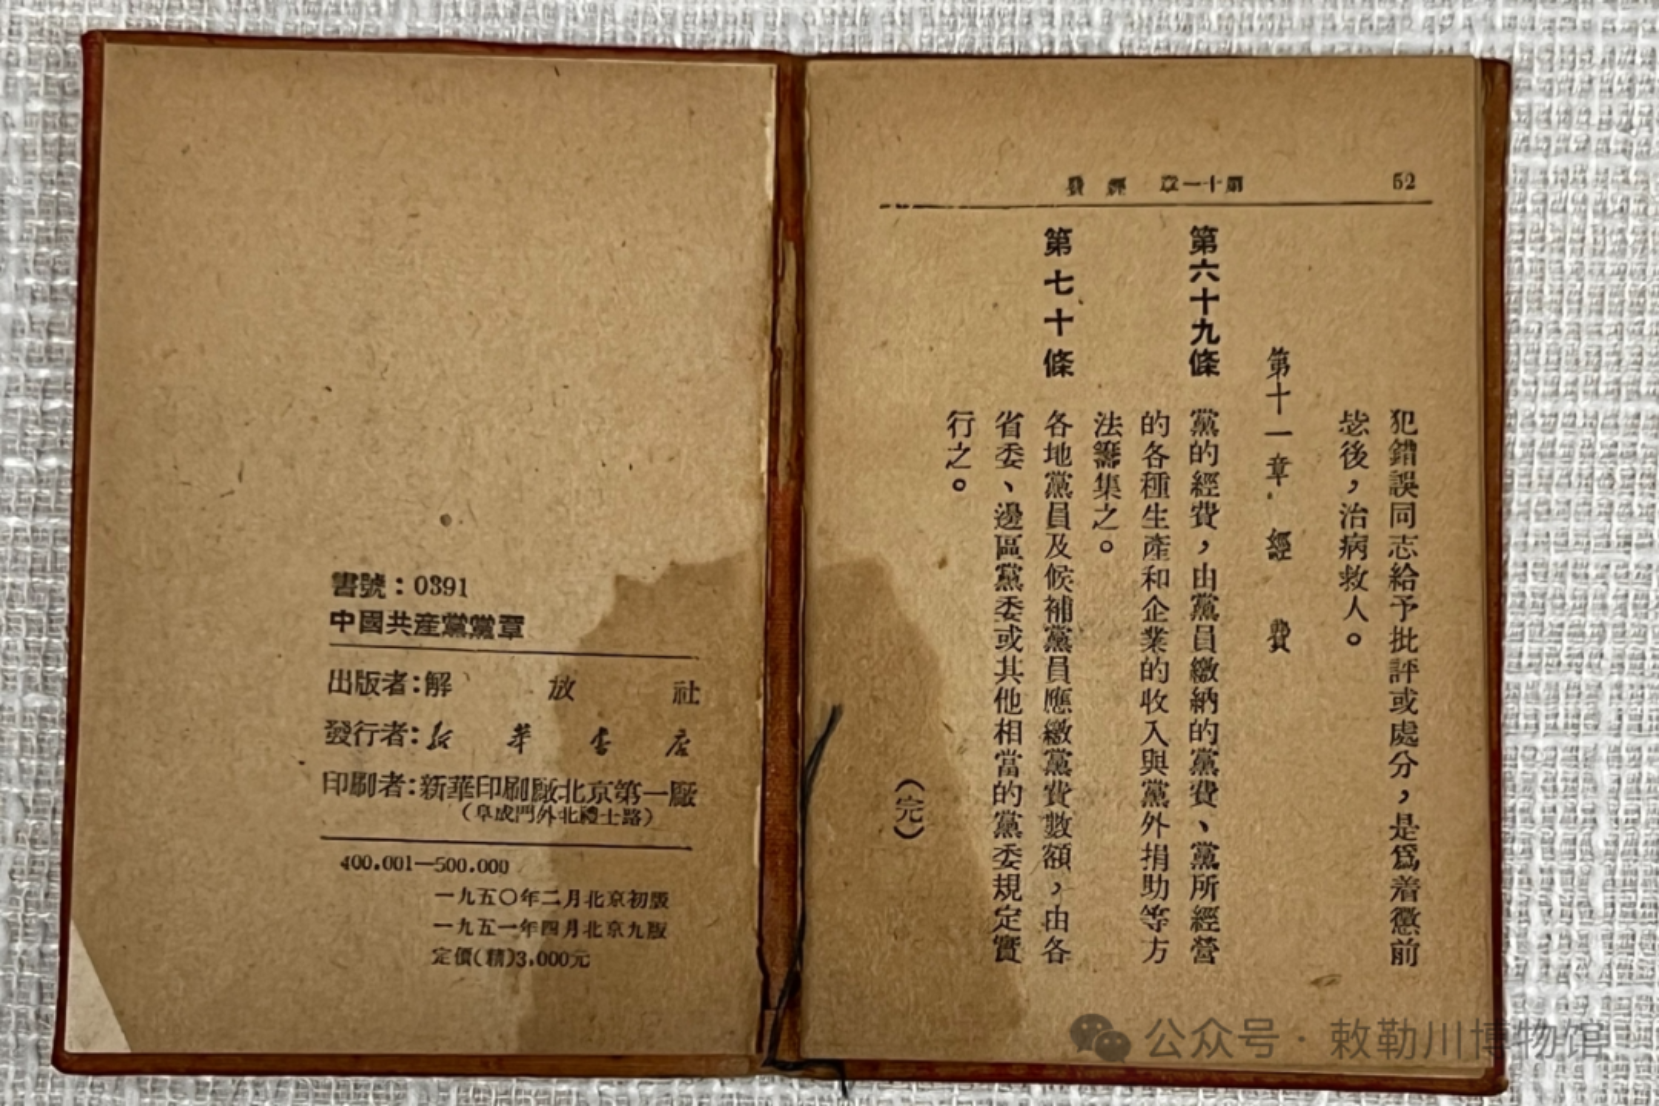 52
第十一章 經費
犯錯誤同志給予批評或處分，是爲着懲前
毖後，治病救人。
第十一章 經費
第六十九條 黨的經費，由黨員繳納的黨費、黨所經營
的各種生產和企業的收入與黨外捐助等方
法籌集之。
第七十條 各地黨員及候補黨員應繳黨費數額，由各
省委、邊區黨委或其他相當的黨委規定實
行之。
（完）
書號：0391
中國共産黨黨章
出版者：解放社
發行者：新華書店
印刷者：新華印刷廠北京第一廠
（阜成門外北禮士路）
400.001—500.000
一九五〇年二月北京初版
一九五一年四月北京九版
定價(精)3,000元
公众号 · 敕勒川博物馆